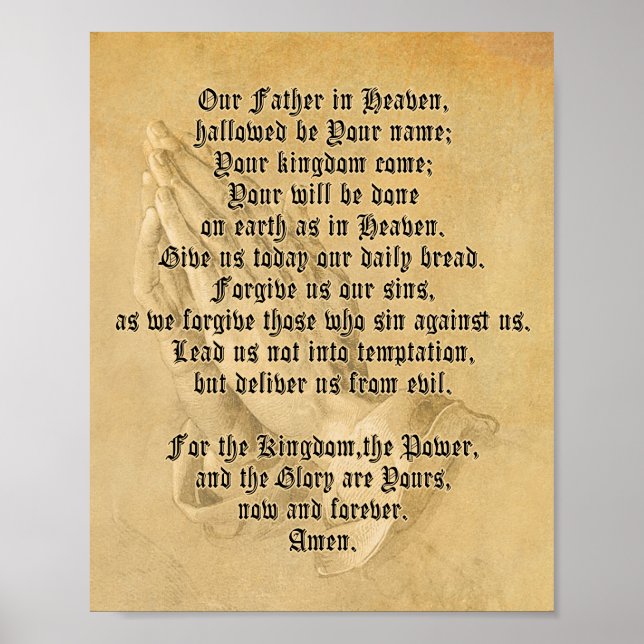 Our Father in Heaven,
hallowed be Your name;
Your kingdom come;
Your will be done
on earth as in Heaven.
Give us today our daily bread.
Forgive us our sins,
as we forgive those who sin against us.
Lead us not into temptation,
but deliver us from evil.
For the Kingdom,the Power,
and the Glory are Yours,
now and forever.
Amen.